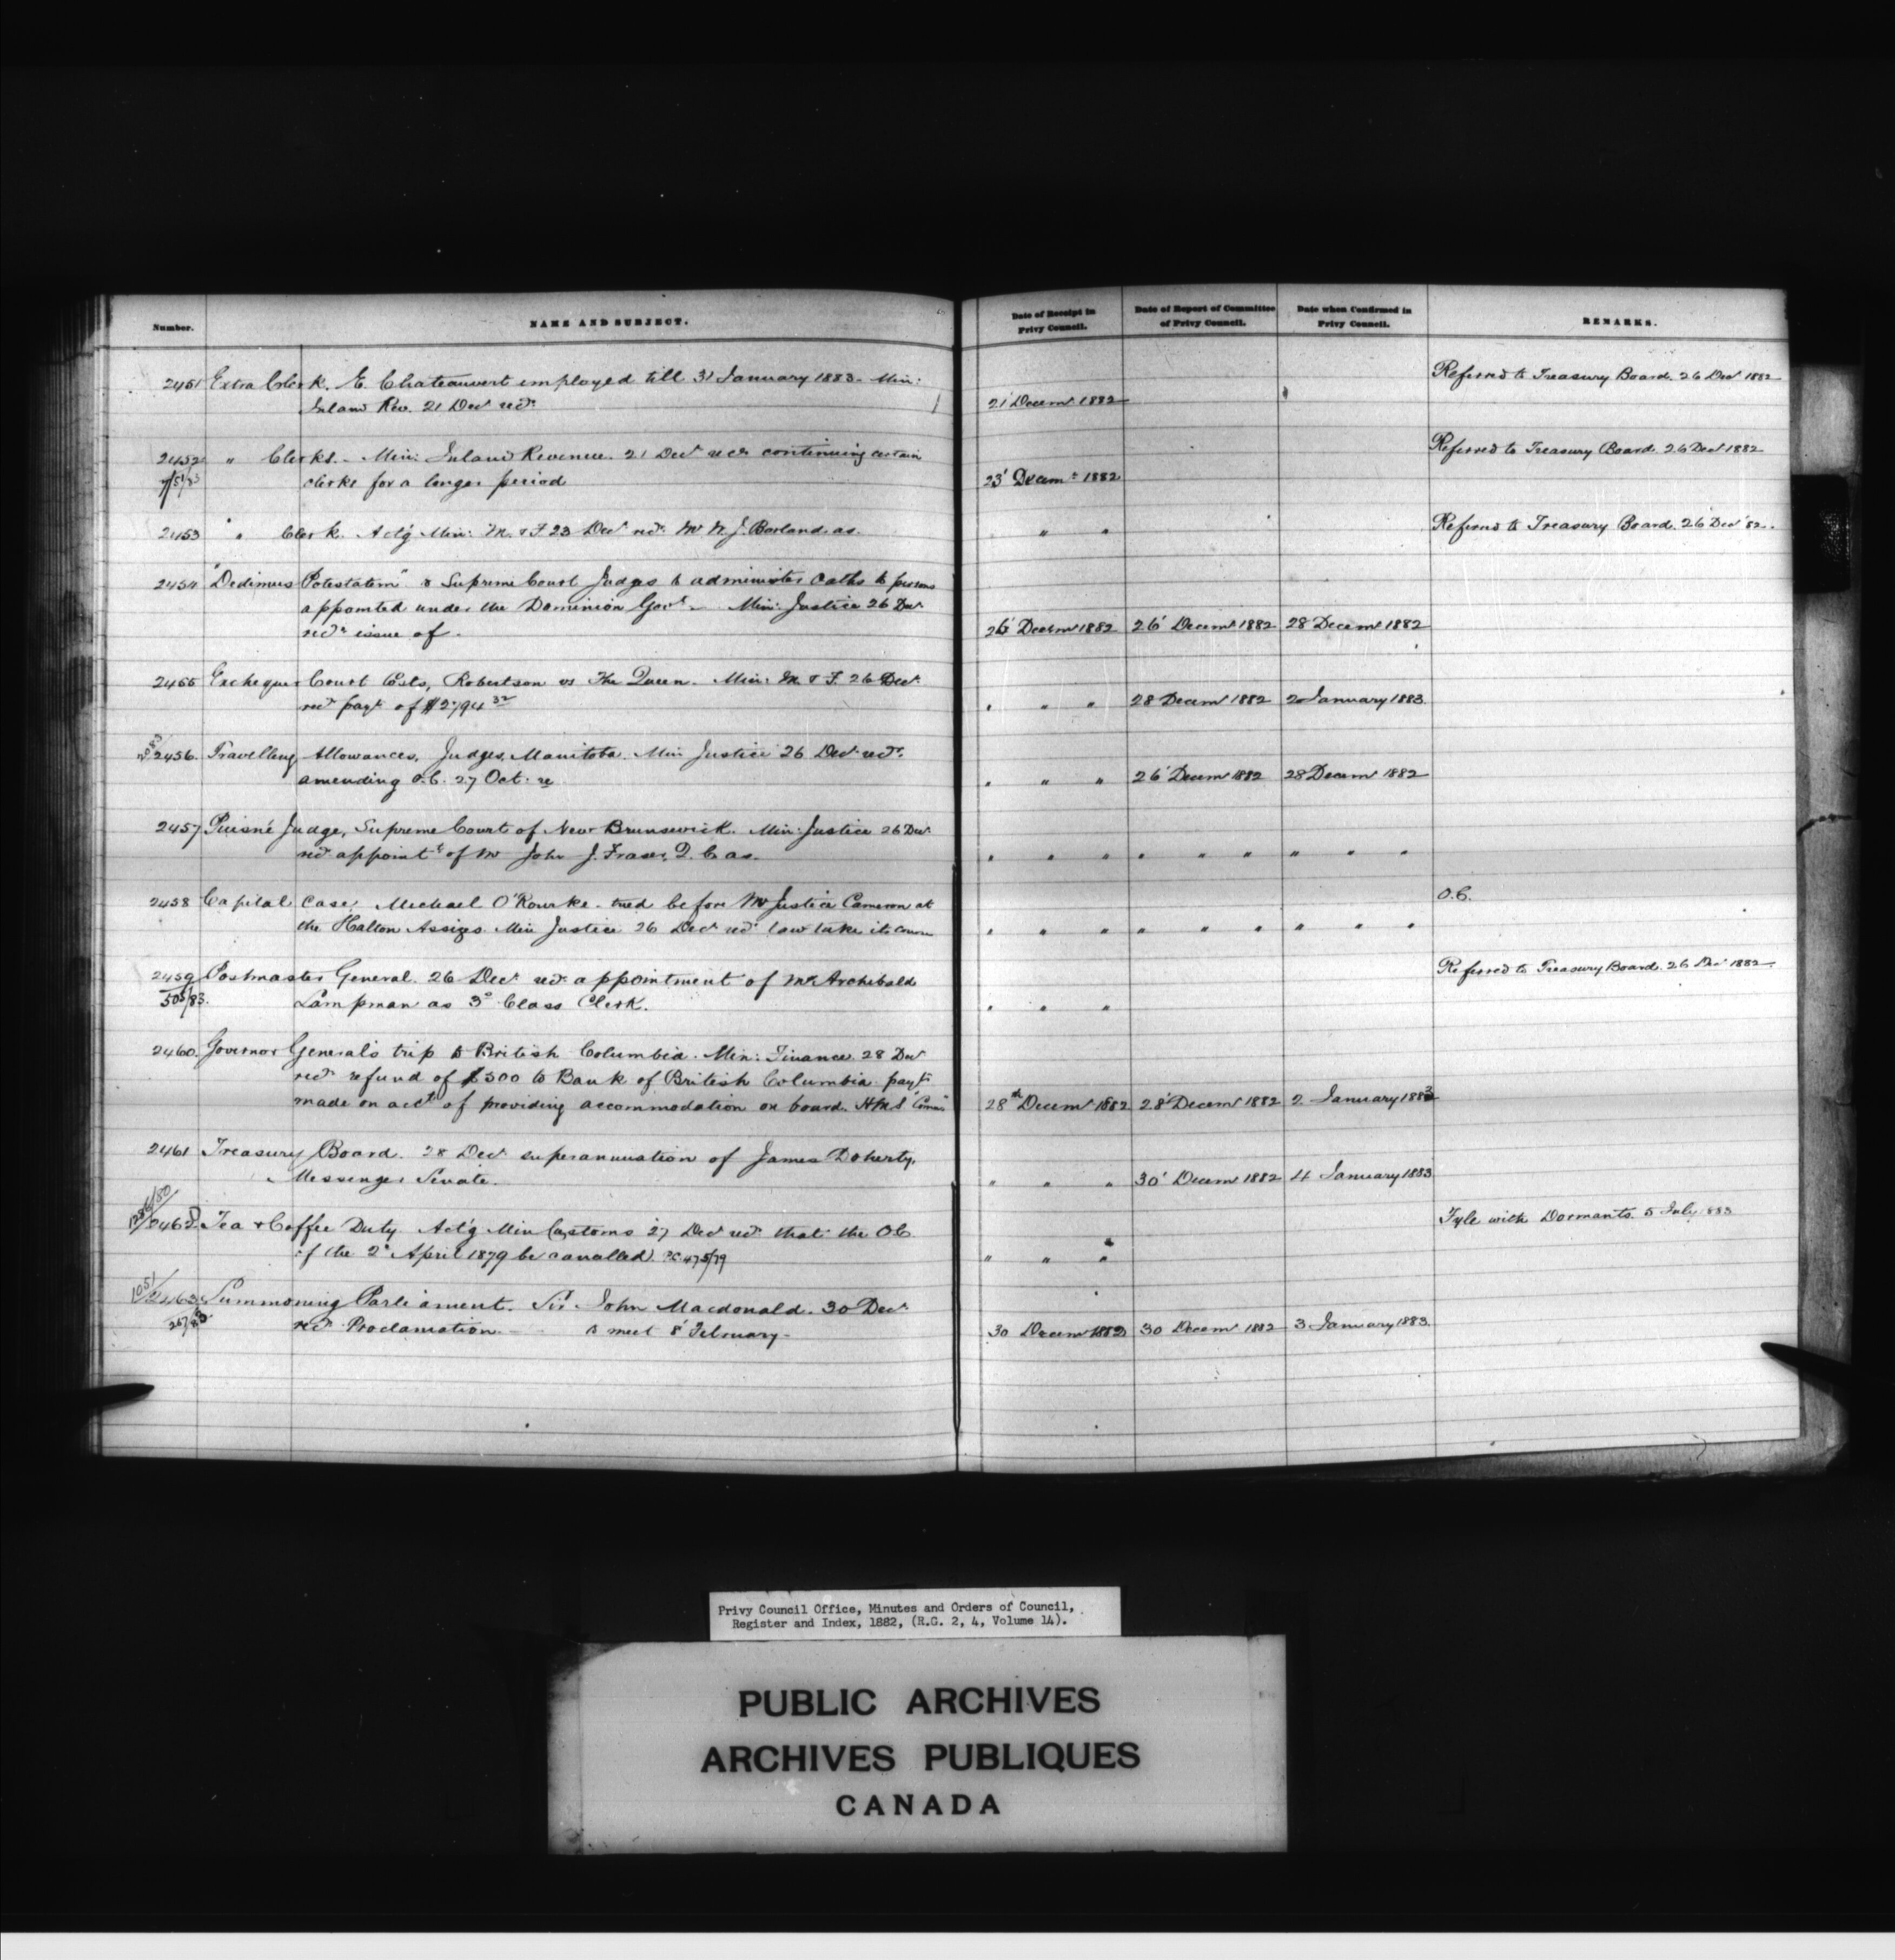 Number. NAME AND SUBJECT. Date of Receipt in Privy Council. Date of Report of Committee of Privy Council. Date when Confirmed in Privy Council. REMARKS.
2451 Extra Clerk. E. Chateauvert employed till 31 January 1883 - Min: Referred to Treasury Board. 26 Decr 1882
Inland Rev. 21 Decr recds 21' Decemr 1882
2452 " Clerks. - Min: Inland Revenue. 21 Decr recds continuing certain Referred to Treasury Board. 26 Decr 1882
clerks for a longer period 23' Decemr 1882
2453 " Clerk. Act'g Min: M. & F 23 Decr recds Mr N. J. Borland as. " " Referred to Treasury Board. 26 Decr '82.
2454 "Dedimus Potestatem" to Supreme Court Judges to administer Oaths to persons
appointed under the Dominion Govt - Min: Justice 26 Decr
recds issue of. 26' Decemr 1882 26' Decemr 1882 28 Decemr 1882
2455 Exchequer Court Costs, Robertson vs The Queen. Min: M. & F. 26 Decr
recds payt of $2794 32 " " " 28 Decemr 1882 2 January 1883.
2456. Travelling Allowances, Judges, Manitoba. Min Justice 26 Decr recds
amending O.C. 27 Oct: re " " " 26' Decemr 1882 28 Decemr 1882
2457 Puisné Judge, Supreme Court of New Brunswick. Min: Justice 26 Decr
recds appointt of Mr John J. Fraser, Q. C as. " " " " " " " " "
2458 Capital Case, Michael O'Rourke - tried before Mr Justice Cameron at O.C.
the Halton Assizes. Min Justice 26 Decr recds law take its course " " " " " " " " "
2459 Postmaster General. 26 Decr recds appointment of Mr Archibald Referred to Treasury Board. 26 Decr 1882.
505/83. Lampman as 3d Class Clerk. " " "
2460. Governor General's trip to British Columbia. Min: Finance. 28 Decr
recds refund of £500 to Bank of British Columbia payt
made on acct of providing accommodation on board. HMS "Comus" 28th Decemr 1882 28' Decemr 1882 2 January 1883
2461 Treasury Board. 28 Decr superannuation of James Doherty,
Messenger Senate. " " " 30' Decemr 1882 4 January 1883
2462 Tea & Coffee Duty Act'g Min Customs 27 Decr recds that the OC Fyle with Dormants. 5 July 1883
of the 2d April 1879 be cancelled. PC 475/79 " " "
1051
2463 Summoning Parliament. Sir John Macdonald. 30 Decr
recds Proclamation - to meet 8' February - 30 Decemr 1882 30 Decemr 1882 3 January 1883.
Privy Council Office, Minutes and Orders of Council,
Register and Index, 1882, (R.G. 2, 4, Volume 14).
PUBLIC ARCHIVES
ARCHIVES PUBLIQUES
CANADA